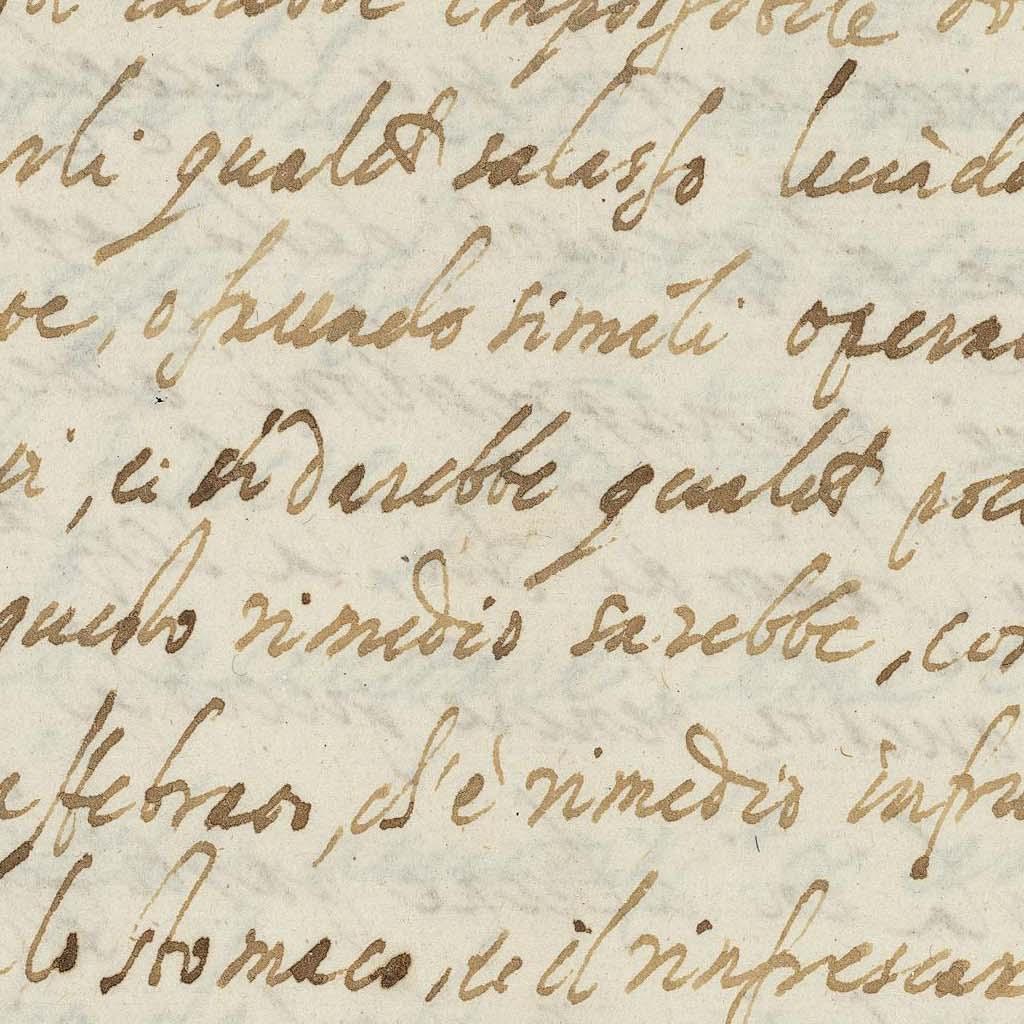 impossibile
rli qualche salasso leuàdo
oe, o fruuando simili opera
ci, ci si darebbe qualche poc
questo rimedio sarebbe, con
febrao, ch'è rimedio infr
lo stomaco, se il rinfrescan